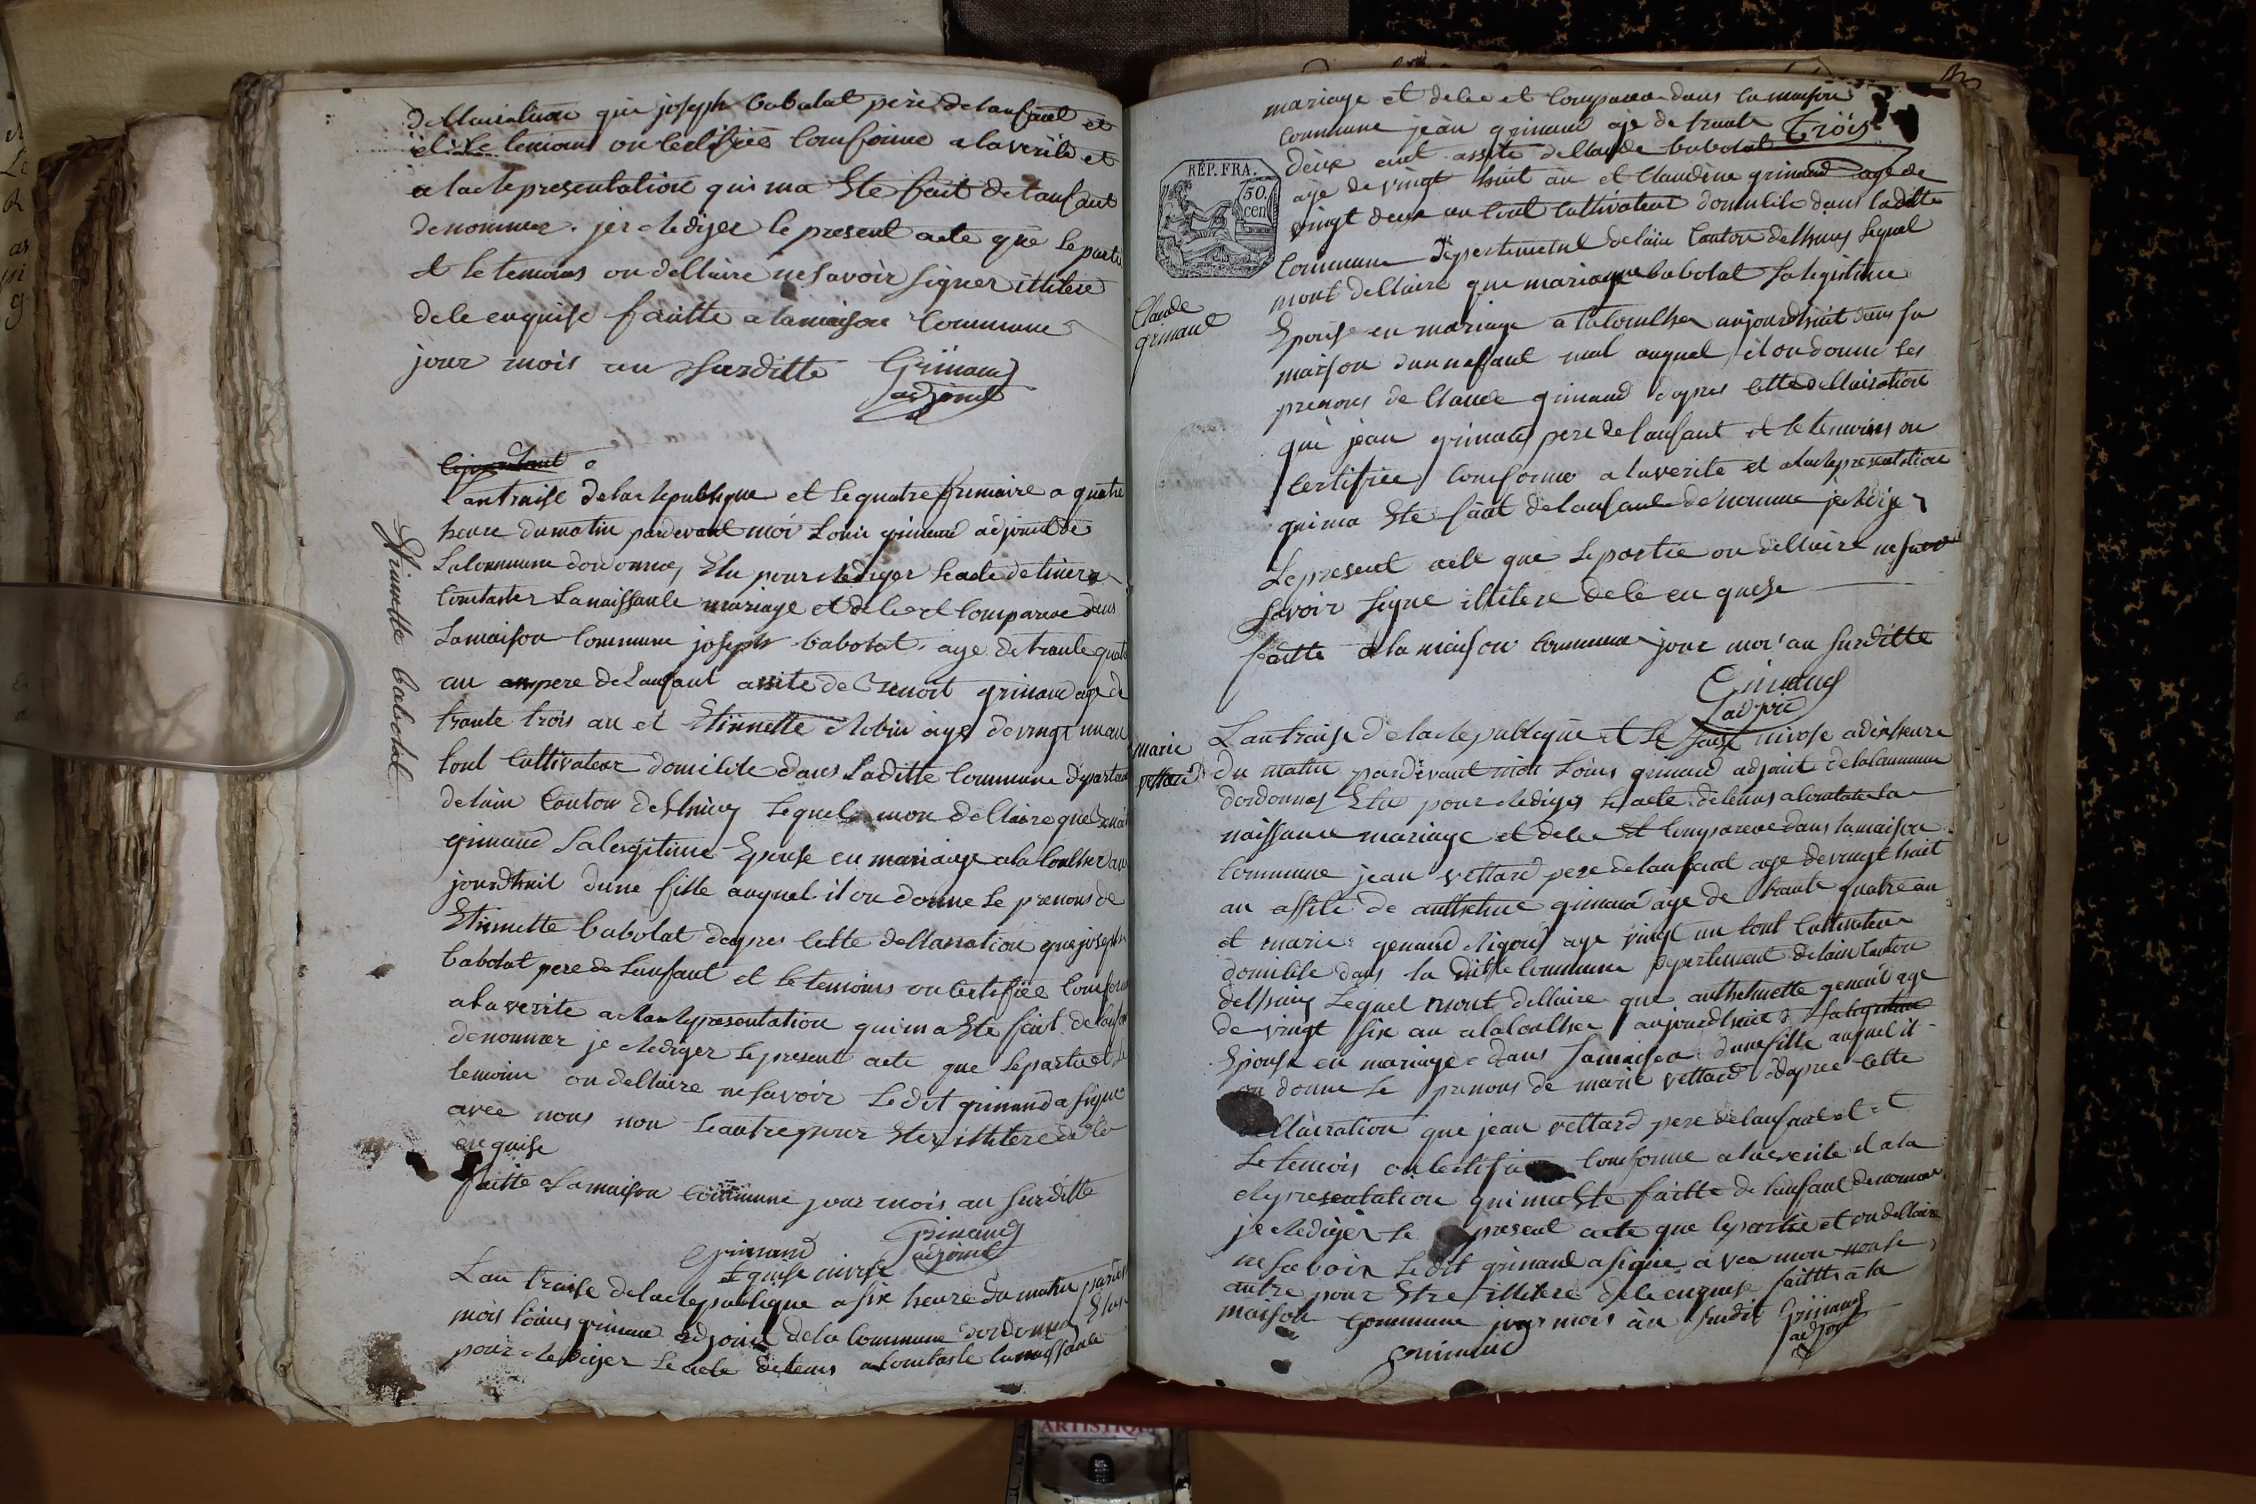 dellairation que joseph babolat pere de lanfant et
et le temoins on certifiée conforme a la verite et
a la representation qui ma Ete fait de lanfant
denommee. jei rediger le present acte que le partie
et le temoins on dellaire ne savoir signer illitere
de le enquise faitte a la maison commune
jour mois an surditte Grimand
adjoint
L'an traise de la republique et le quatre frimaire a quatre
heure du matin pardevant moi Louis grimand adjoint de
La commune dordonnas Elu pour rediger le acte
Constater La naissance mariage et dele et comparue dans
La maison commune joseph babolat age de trante quatre
an pere de Lanfant assite de Benoit grimand age de
trante trois an et Etiennette Robin age de vingt un an
tout Cultivateur domicile dans Laditte Commune departement
de lain Canton de Lequel mon dellaire que
grimand Sa legitime Epouse en mariage a la coulher au
jourdhuit dune fille auquel il on donne le prenons de
Etiennette babolat dapres cette dellaration que joseph
babolat pere de Lanfant et le temoins on certifiée conforme
a la verite a la representation qui ma Ete fait de lanfant
denommer je rediger le present acte que le partie et le
temoins on dellaire ne savoir Le dit grimand a signe
avec nous non le autre pour Etre illitere de le
enquise
faitte a La maison commune jour mois an surditte
Grimand Grimand
adjoint
Etiennette babolat
L'an traise de la republique a six heure du matin pardev
mois Louis grimand adjoint de la Commune dordonnas Elu
pour rediger Le acte a constaste la naissance
mariage et dele et comparea dans la maison
commune jean grimand age de trante Trois
age de vingt huit an et Claudine grimand age de
vingt deux an tout cultivateur domicile dans laditte
Commune departement de lain Canton de Lequel
mont dellaire que mariagne babolat sa legitime
RÉP. FRA.
50.
cen
Claude
grimand
Epouse en mariage a la coulher aujourdhuit dans sa
maison dun anfant mal auquel il on donne les
prenons de Claude grimand dapres cette dellairation
que jean grimand pere de lanfant et le temoins on
certifiée conforme a la verite et a la representation
qui ma Ete fait de lanfant denomme je redige
Le present acte que le partie on dellaire ne
savoir signe illitere de le en quise
faitte a la maison commune jour moi an surditte
Grimand
adjoint
marie
vettard
L'an traise de la republique et le saise nivose a dix heure
du matin pardevant moi Louis grimand adjoint de la Commune
dordonnas Elu pour rediger le acte a constate la
naissance mariage et dele et comparue dans la maison
Commune jean vettard pere de lanfant age de vingt huit
an assite de grimand age de trante quatre an
et marie age vingt un tout Cultivateur
domicile dans la ditte Commune departement de lain Canton
Lequel mont dellaire que age
de vingt six an a la coulher aujourdhuit sa legitime
Epouse en mariage dans sa maison dune fille auquel il
on donne le prenons de marie vettard dapree cette
dellairation que jean vettard pere de lanfant et
Le temois on conforme a la verite et a la
representation qui ma Ete faitte de lanfant denommer
je rediger le present acte que le partie et on dellaire
ne savoir Le dit grimand a signe avec mon non le
autre pour Etre illitere de le enquise faitte a la
maison commune jour mois an surdit Grimand
adjoint
Grimand
ARTISTIQUE